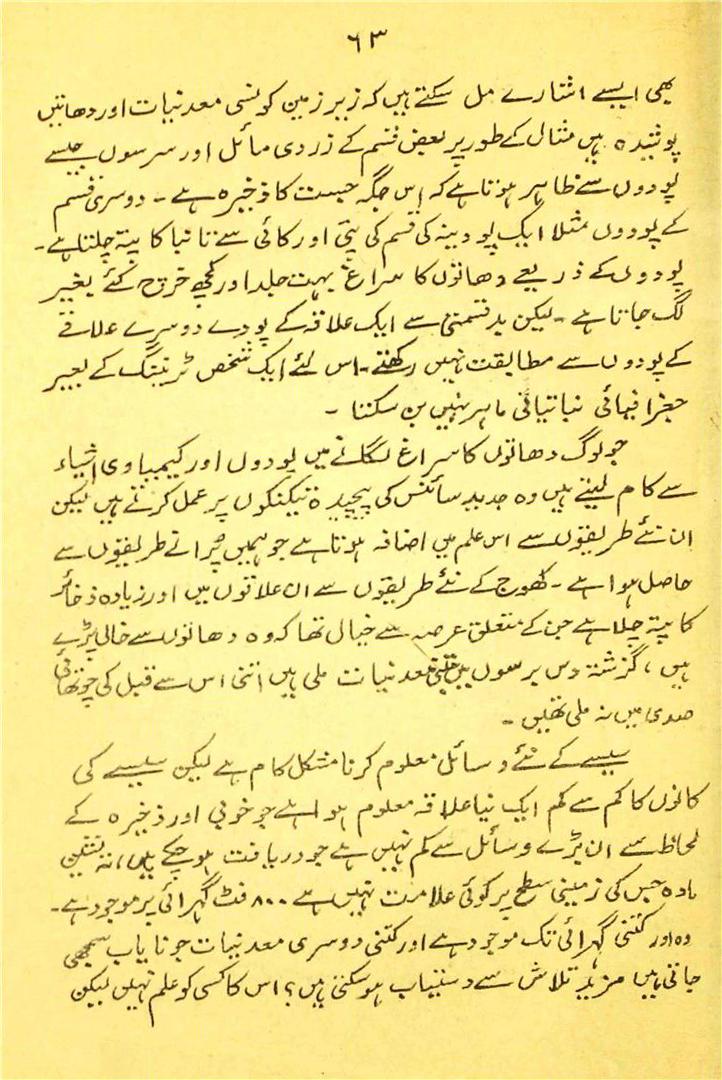 ۶۳
بھی ایسے اشارے مل سکتے ہیں کہ زیر زمین کونسی معدنیات اور دھاتیں
پوشیدہ ہیں مثال کے طور پر بعض قسم کے زردی مائل اور سرسوں جیسے
پودوں سے ظاہر ہوتا ہے کہ اس جگہ جست کا ذخیرہ ہے ۔ دوسری قسم
کے پودوں مثلا ایک پودینہ کی قسم کی پتی اور کائی سے تانبا کا پتہ چلتا ہے ۔
پودوں کے ذریعے دھاتوں کا سراغ بہت جلد اور کچھ خرچ کئے بغیر
لگ جاتا ہے ۔ لیکن بدقسمتی سے ایک علاقہ کے پودے دوسرے علاقے
کے پودوں سے مطابقت نہیں رکھتے ۔ اس لئے ایک شخص ٹریننگ کے بغیر
جغرافیائی نباتیاتی ماہر نہیں بن سکتا ۔
جو لوگ دھاتوں کا سراغ لگانے میں پودوں اور کیمیاوی اشیاء
سے کام لیتے ہیں وہ جدید سائنس کی پیچیدہ تیکنکوں پر عمل کرتے ہیں لیکن
ان نئے طریقوں سے اس علم میں اضافہ ہوتا ہے جو ہمیں پرانے طریقوں سے
حاصل ہوا ہے ۔ کھوج کے نئے طریقوں سے ان علاقوں میں اور زیادہ ذخائر
کا پتہ چلا ہے جن کے متعلق عرصہ سے خیال تھا کہ وہ دھاتوں سے خالی پڑے
ہیں ، گزشتہ دس برسوں میں جتنی معدنیات ملی ہیں اتنی اس سے قبل کی چوتھائی
صدی میں نہ ملی تھیں ۔
سیسے کے نئے وسائل معلوم کرنا مشکل کام ہے لیکن سیسے کی
کانوں کا کم سے کم ایک نیا علاقہ معلوم ہوا ہے جو خوبی اور ذخیرہ کے
لحاظ سے ان بڑے وسائل سے کم نہیں ہے جو دریافت ہو چکے ہیں ، نہ نشین
مادہ جس کی زمینی سطح پر کوئی علامت نہیں ہے ۸۰۰ فٹ گہرائی پر موجود ہے ۔
وہ اور کتنی گہرائی تک موجود ہے اور کتنی دوسری معدنیات جو نایاب سمجھی
جاتی ہیں مزید تلاش سے دستیاب ہو سکتی ہیں ؟ اس کا کسی کو علم نہیں لیکن